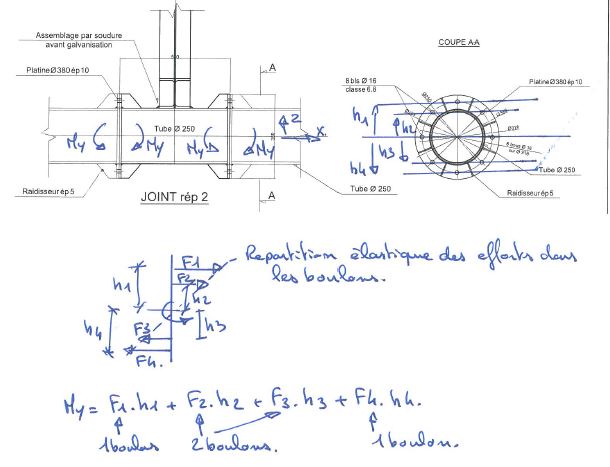 Assemblage par soudure
avant galvanisation
Platine Ø 380 ép 10
A
Z
X
My
My
Tube Ø 250
My
My
Raidisseur ép 5
JOINT rép 2
A
Tube Ø 250
COUPE AA
8 bls Ø 16
classe 6.8
Platine Ø 380 ép 10
h1
h2
h3
h4
Tube Ø 250
Raidisseur ép 5
F1
F2
h1
h2
h4
F3
h3
F4.
Repartition élastique des efforts dans
les boulons.
My = F1.h1 + F2.h2 + F3.h3 + F4.h4.
1 boulon
2 boulons.
1 boulon.